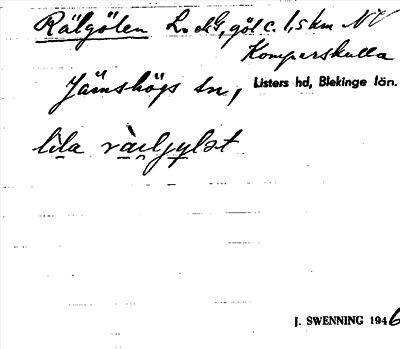 Rälgölen L. o. G, göl c. 1,5 km NV
Komperskulla
Jämshögs sn, Listers hd, Blekinge län.
lila
J. SWENNING 1946